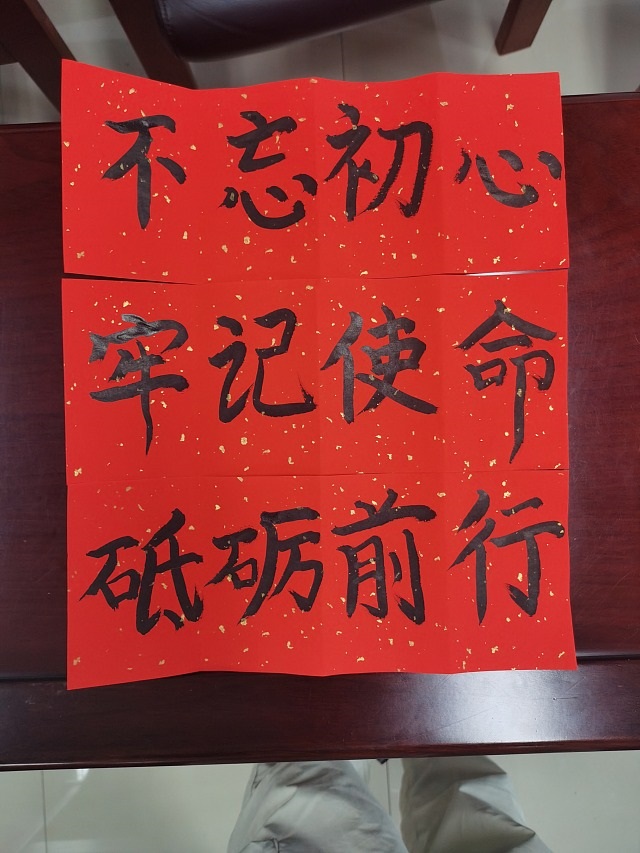 不忘初心
牢记使命
砥砺前行